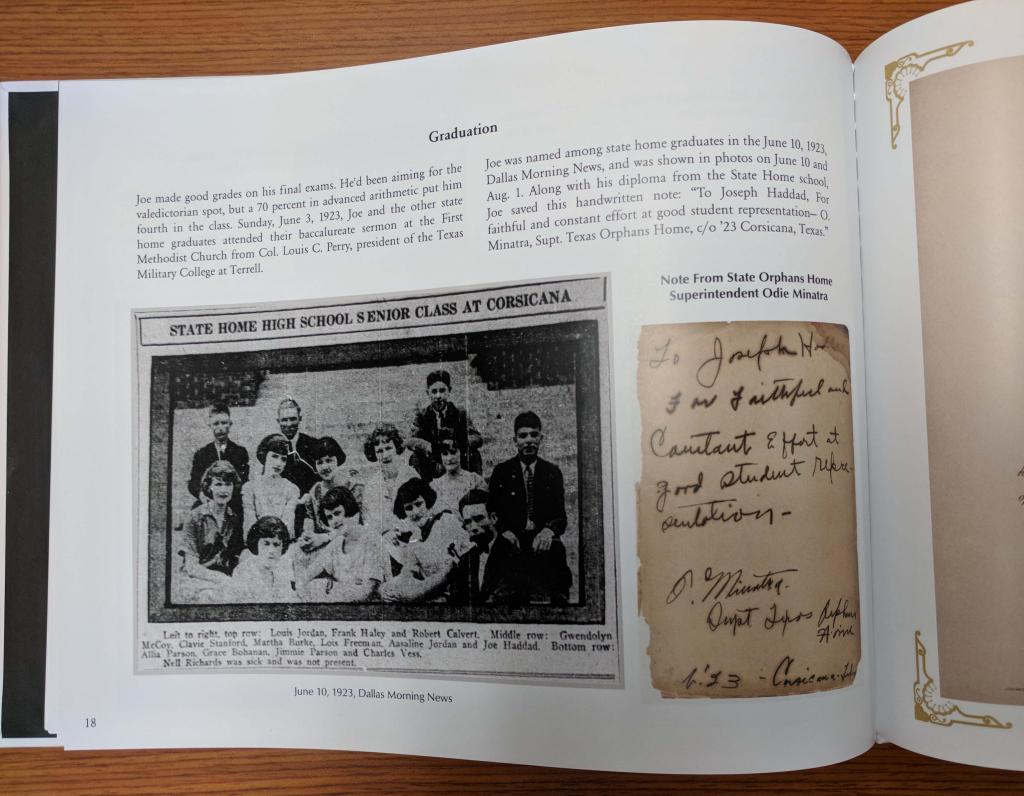 Graduation
Joe made good grades on his final exams. He'd been aiming for the
valedictorian spot, but a 70 percent in advanced arithmetic put him
fourth in the class. Sunday, June 3, 1923, Joe and the other state
home graduates attended their baccalaureate sermon at the First
Methodist Church from Col. Louis C. Perry, president of the Texas
Military College at Terrell.
Joe was named among state home graduates in the June 10, 1923,
Dallas Morning News, and was shown in photos on June 10 and
Aug. 1. Along with his diploma from the State Home school,
Joe saved this handwritten note: “To Joseph Haddad, For
faithful and constant effort at good student representation– O.
Minatra, Supt. Texas Orphans Home, c/o '23 Corsicana, Texas.”
STATE HOME HIGH SCHOOL SENIOR CLASS AT CORSICANA
Left to right, top row: Louis Jordan, Frank Haley and Robert Calvert. Middle row: Gwendolyn
McCoy, Clavie Stanford, Martha Burke, Lois Freeman, Aasaline Jordan and Joe Haddad. Bottom row:
Allia Parson, Grace Bohanan, Jimmie Parson and Charles Vess.
Nell Richards was sick and was not present.
June 10, 1923, Dallas Morning News
18
Note From State Orphans Home
Superintendent Odie Minatra
To Joseph
For Faithful and
Constant Effort at
good student repre-
sentation-
O. Minatra.
Supt Texas Orphans
Home
- Corsicana-